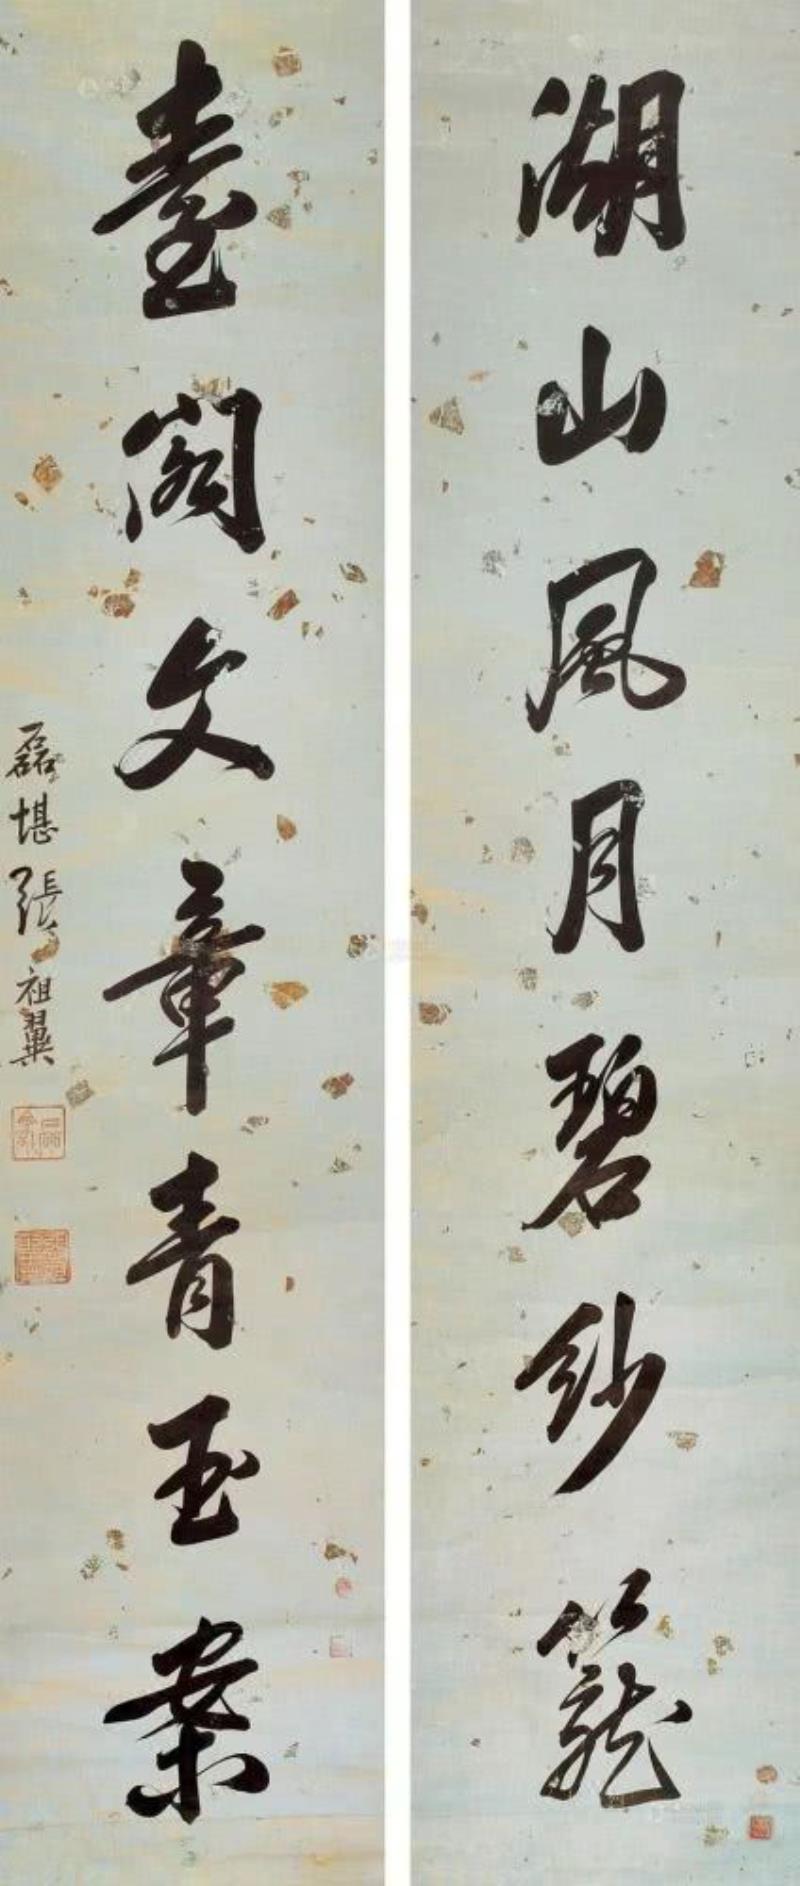 湖山風月碧紗籠
臺閣文章青玉案
磊堪張祖翼